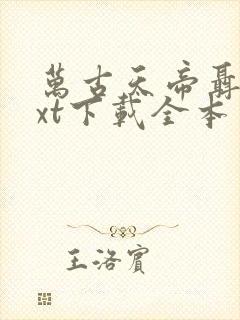 萬古天帝聶
xt下載全本
王洛賓